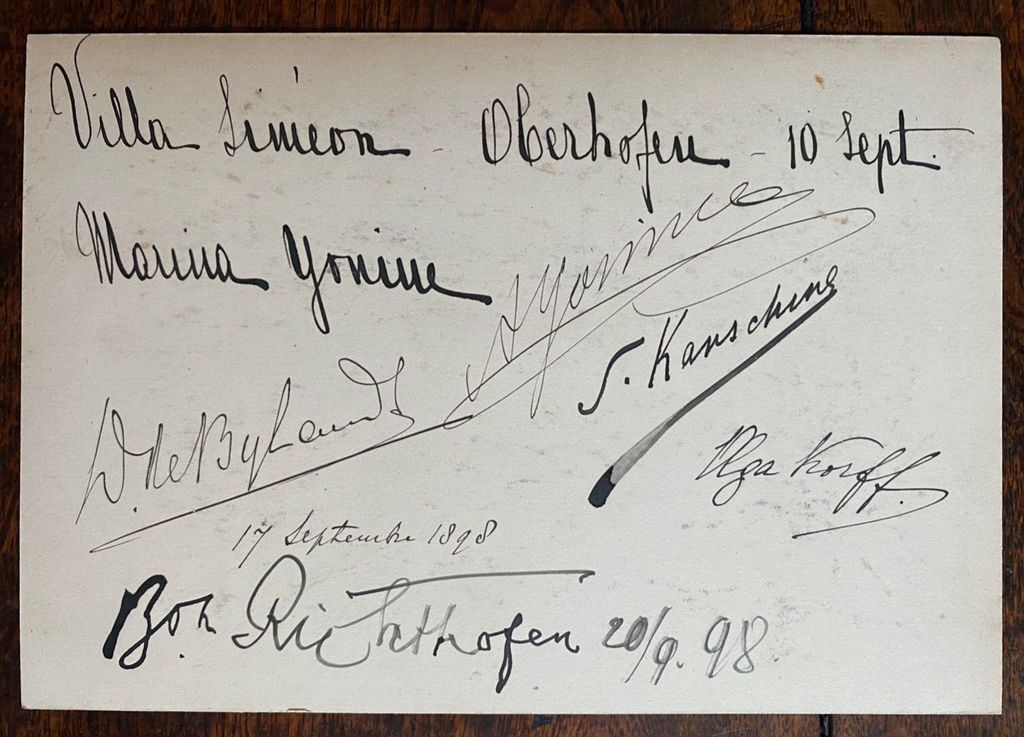 Villa Siméon - Oberhofen - 10 Sept.
Marina Yonine
A Yonine
S. Kauschine
W. de Bylandt
Olga Korff.
17 Septembre 1898
Bon Richthofen 20/9. 98.